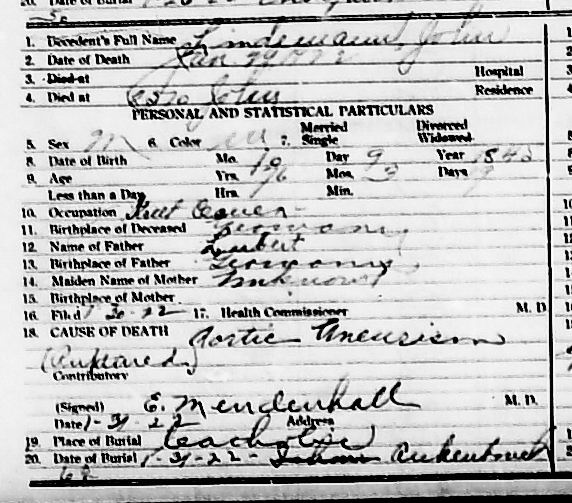 20. Date of Burial
1. Decedent's Full Name Lindemann, John
2. Date of Death Jan 29 1922
3. Died at Hospital
4. Died at John Residence
PERSONAL AND STATISTICAL PARTICULARS
5. Sex M 6. Color W 7. Married Single Divorced Widowed
8. Date of Birth Mo. 10 Day 9 Year 1845
9. Age Yrs. 76 Mos. 3 Days
Less than a Day Hrs. Min.
10. Occupation
11. Birthplace of Deceased Germany
12. Name of Father
13. Birthplace of Father Germany
14. Maiden Name of Mother Unknown
15. Birthplace of Mother
16. Fil'd 1-31-22 17. Health Commissioner M. D.
18. CAUSE OF DEATH Aortic Aneurism
(Ruptured)
Contributory
(Signed) E. Mendenhall M. D.
Date 1-31-22 Address
19. Place of Burial Catholic
20. Date of Burial 1-31-22-